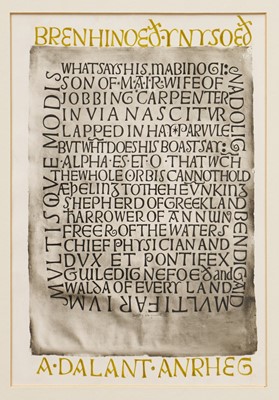 BRENHINOEÐ·YNYSOEÐ
WHAT SAYS HIS MABINOGI:
SON OF MAIR, WIFE OF
JOBBING CARPENTER
IN VIA NASCITUR
LAPPED IN HAY· PARVULE
BUT WHAT DOES HIS BOAST SAY:
ALPHA·ES·ET·O· THAT WCH
THE WHOLE ORBIS CANNOT HOLD
ÆÞELING TO THE HEUNKING
SHEPHERD OF GREEKLAND
HARROWER OF ANNUN
FREER OF THE WATERS
CHIEF PHYSICIAN AND
DUX ET PONTIFEX
GULEDIG NEFOEÐ and
WALDA OF EVERY LAND
MULTIFARIUM
MULTISQUE MODIS
NADOLIG BENDIGAID
A·DALANT·ANRHEG